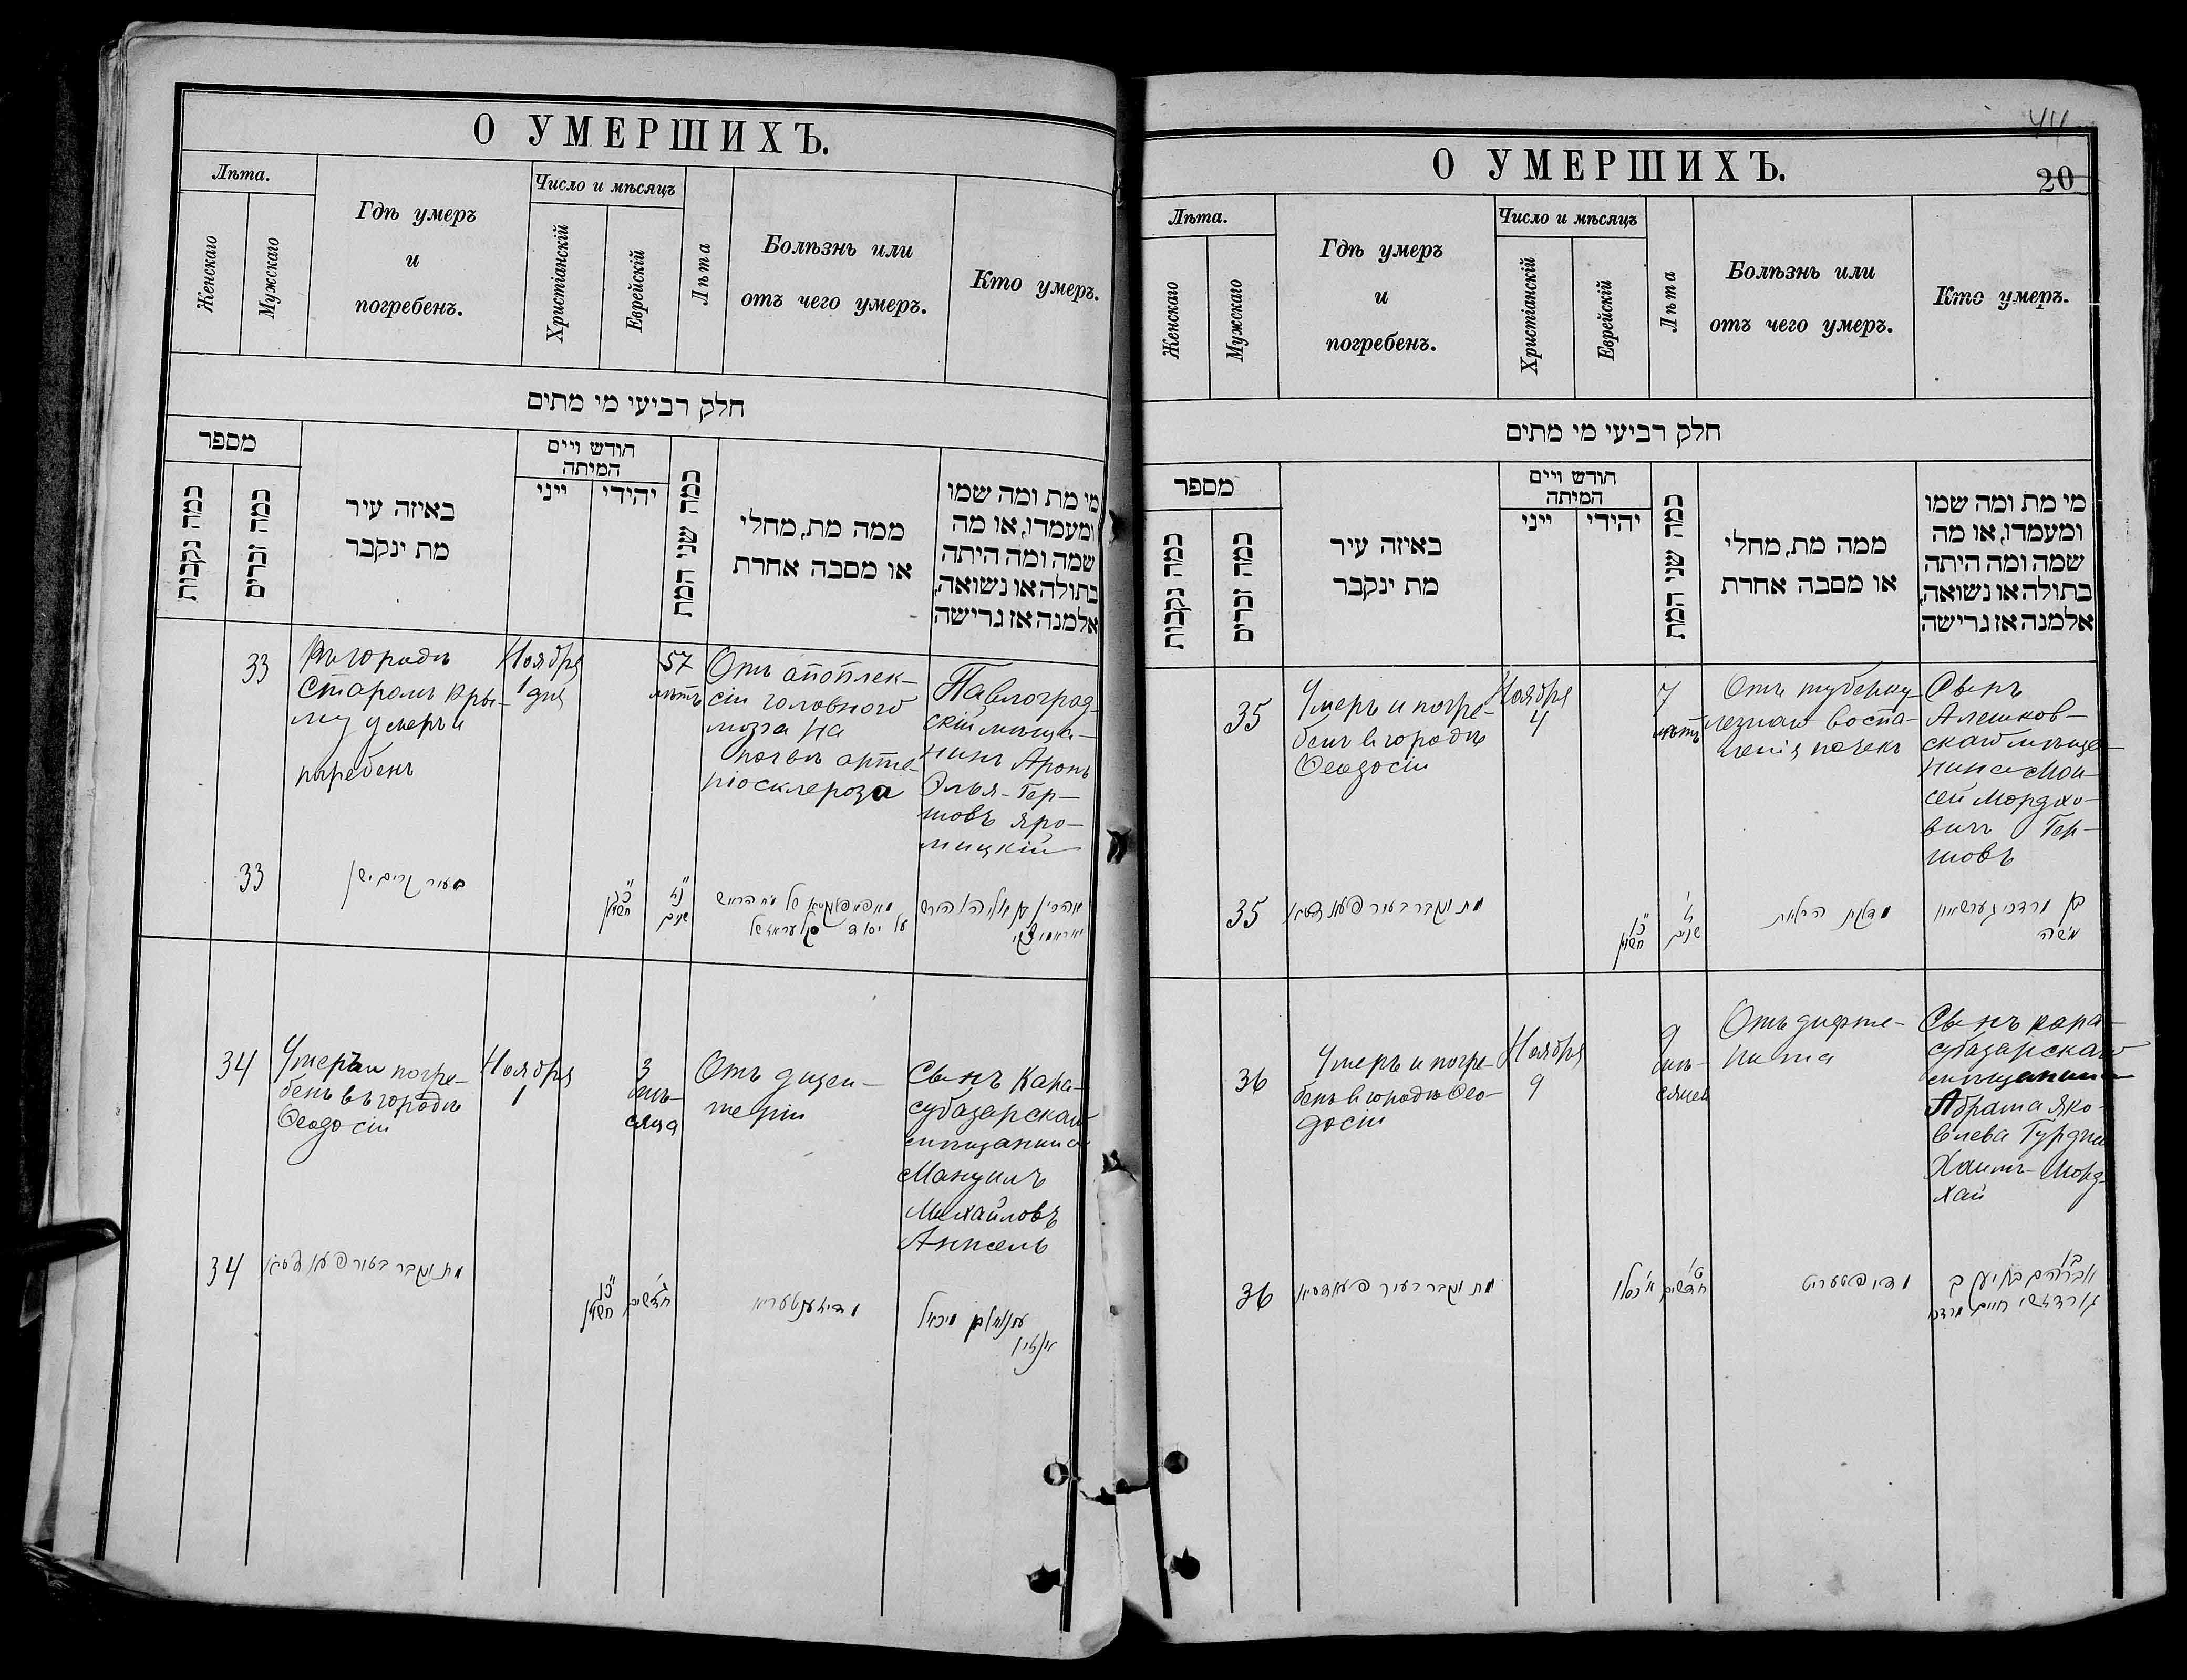 О УМЕРШИХЪ.
Лѣта.
Женскаго
Мужскаго
Гдѣ умеръ
и
погребенъ.
Число и мѣсяцъ
Христіанскій
Еврейскій
Лѣта
Болѣзнь или
отъ чего умеръ.
Кто умеръ.
חלק רביעי מי מתים
מספר
כמה נקבות
כמה זכרים
באיזה עיר
מת ינקבר
חודש ויים
המיתה
ייני
יהודי
כמה שני המת
ממה מת, מחלי
או מסבה אחרת
מי מת ומה שמו
ומעמדו, או מה
שמה ומה היתה
בתולה או נשואה,
אלמנה אז גרישה
33
Въ городѣ
Старомъ Кры-
му умеръ и
погребенъ
Ноября
1 дня
57
лѣтъ
Отъ апоплек-
сіи головного
мозга на
почвѣ арте-
ріосклероза
Павлоград-
скій мѣща-
нинъ Аронъ
Элья-Гер-
шовъ Яро-
мицкій
33
שנים
34
Умеръ и погре-
бенъ въ городѣ
Ѳеодосіи
Ноября
1
3
мѣ-
сяца
Отъ дизен-
теріи
Сынъ Кара-
субазарскаго
мѣщанина
Мануилъ
Михайловъ
Анжель
34
מת ונקבר בעיר פעאדסיא
О УМЕРШИХЪ.
44
20
Лѣта.
Женскаго
Мужскаго
Гдѣ умеръ
и
погребенъ.
Число и мѣсяцъ
Христіанскій
Еврейскій
Лѣта
Болѣзнь или
отъ чего умеръ.
Кто умеръ.
חלק רביעי מי מתים
מספר
כמה נקבות
כמה זכרים
באיזה עיר
מת ינקבר
חודש ויים
המיתה
ייני
יהודי
כמה שני המת
ממה מת, מחלי
או מסבה אחרת
מי מת ומה שמו
ומעמדו, או מה
שמה ומה היתה
בתולה או נשואה,
אלמנה אז גרישה
35
Умеръ и погре-
бенъ въ городѣ
Ѳеодосіи
Ноября
4
7
лѣтъ
Отъ туберку-
лезнаго воспа-
ленія почекъ
Сынъ
Алешков-
скаго мѣща-
нина Мои-
сей Мордхо-
вичъ Гер-
шовъ
35
מת ונקבר בעיר פעאדסיא
ז'
שנים
בן מרדכי גערשאוו
משה
36
Умеръ и погре-
бенъ въ городѣ Ѳео-
досіи
Ноября
9
9
мѣ-
сяцев
Отъ дифте-
рита
Сынъ кара-
субазарскаго
мѣщанина
Абрама Яко-
влева Гурджи
Хаимъ-Морд-
хай
36
מת ונקבר בעיר פעאדסיא
א' כסלו
ט'
חדשים
מדיפטעריט
בן
אברהם בן יעקב
גורדזשי חיים מרדכי